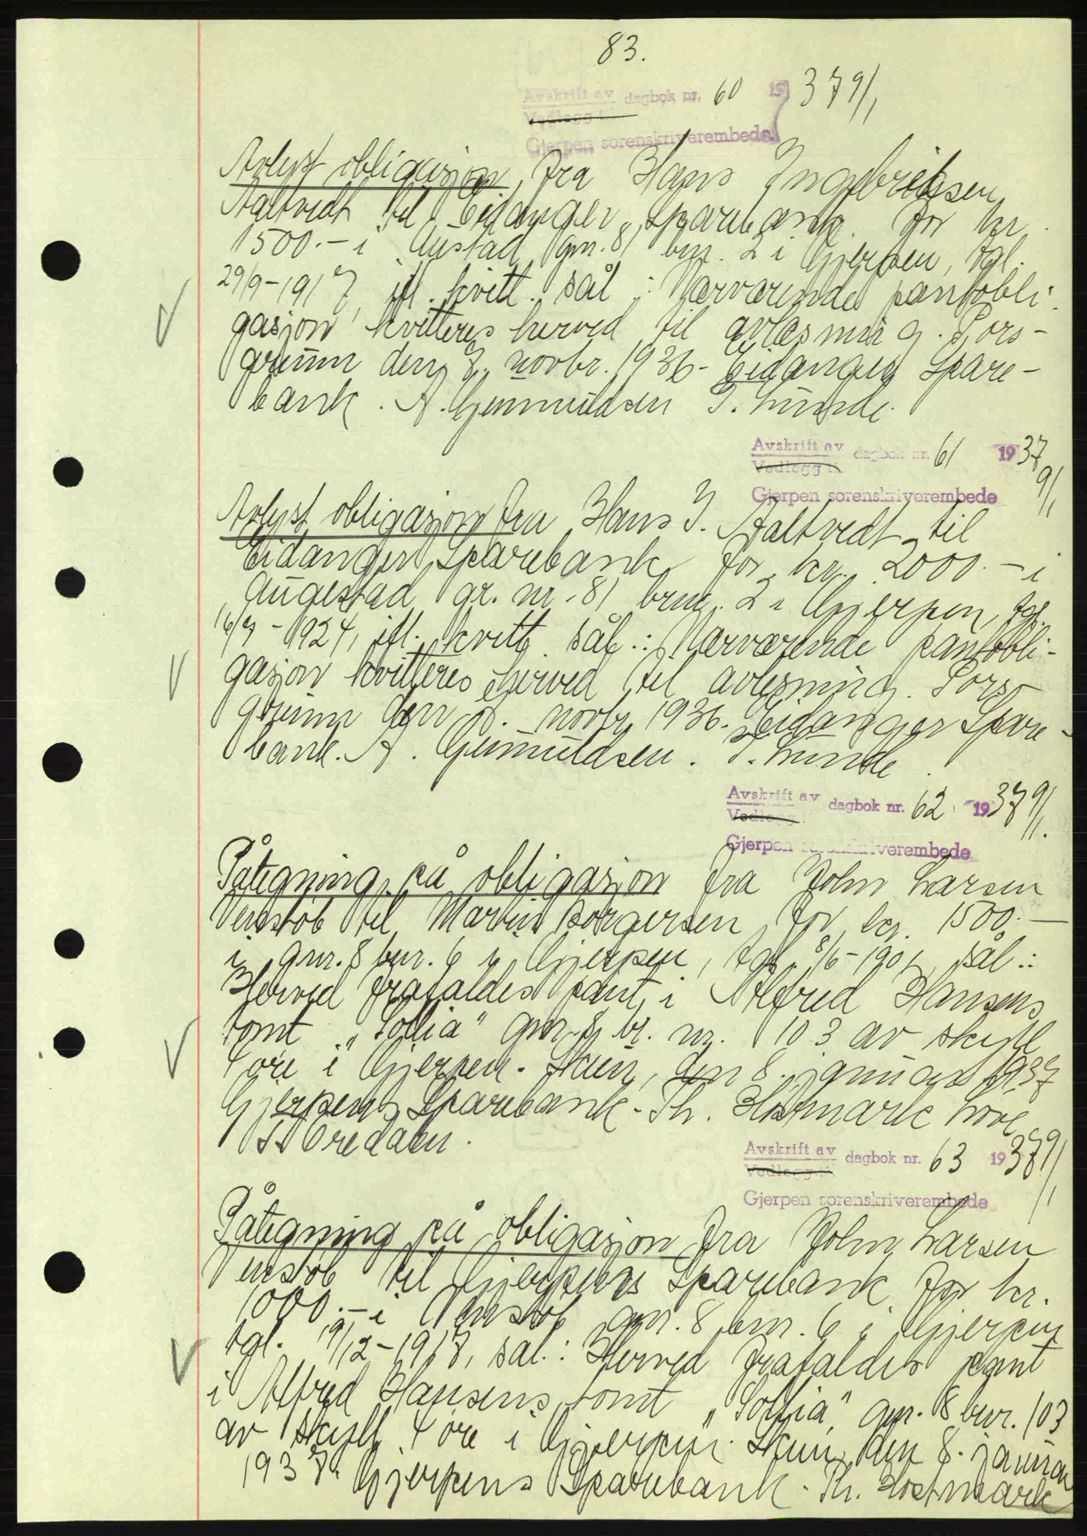 83.
Avskrift av dagbok nr. 60 1937 9/1
Vedlegg
Gjerpen sorenskriverembede
Avlyst obligasjon fra Hans Ingebretsen
Aaltvedt til Eidanger Sparebank for kr.
500.- i Austad gnr. 81 bnr. 2 i Gjerpen, tgl.
29/9-1917, ifl. kvitt. sål.: Nærværende pantobli-
gasjon kvitteres herved til avlesning. Pors-
grunn den 3. novbr. 1936- Eidanger Spare-
bank. A. Gunnuldsen T. Lunde.
Avskrift av dagbok nr. 61 1937 9/1
Vedlegg
Gjerpen sorenskriverembede
Avlyst obligasjon fra Hans I. Aaltvedt til
Eidanger Sparebank for kr. 2000.- i
Augestad gr. nr. 81 brnr. 2 i Gjerpen, tgl.
-1924, ifl. kvitt. sål.: Nærværende pantobli-
gasjon kvitteres herved til avlesning. Pors-
grunn den novbr. 1936. Eidanger Spare-
bank. A. Gunnuldsen. T. Lunde.
Avskrift av dagbok nr. 62 1937 9/1.
Vedlegg
Gjerpen sorenskriverembede
Påtegning på obligasjon fra John Larsen
Venstøb til Martin Borgersen for kr. 1500.-
i gnr. 8 bnr. 6 i Gjerpen, tgl. 8/6-1901, sål.:
Herved frafaldes pant i Alfred Hansens
tomt "Sollia" gnr. 8 br. nr. 103 av skyll
4 øre i Gjerpen. Skien, den 8. januar 1937
Gjerpens Sparebank. Th. Hostmark
Bredalen.
Avskrift av dagbok nr. 63 1937 9/1
Vedlegg
Gjerpen sorenskriverembede
Påtegning på obligasjon fra John Larsen
Venstøb til Gjerpens Sparebank for kr.
1000.- i Venstøb gnr. 8 bnr. 6 i Gjerpen
tgl. 19/12-1917, sål.: Herved frafaldes pant
i Alfred Hansens tomt "Sollia" gnr. 8 bnr. 103
av skyll 4 øre i Gjerpen. Skien, den 8. januar
1937. Gjerpens Sparebank. Th. Hostmark